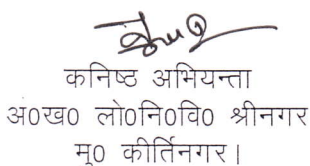 कनिष्ठ अभियन्ता
अं०ख० लो०नि०वि० श्रीनगर
मु० कीर्तिनगर।